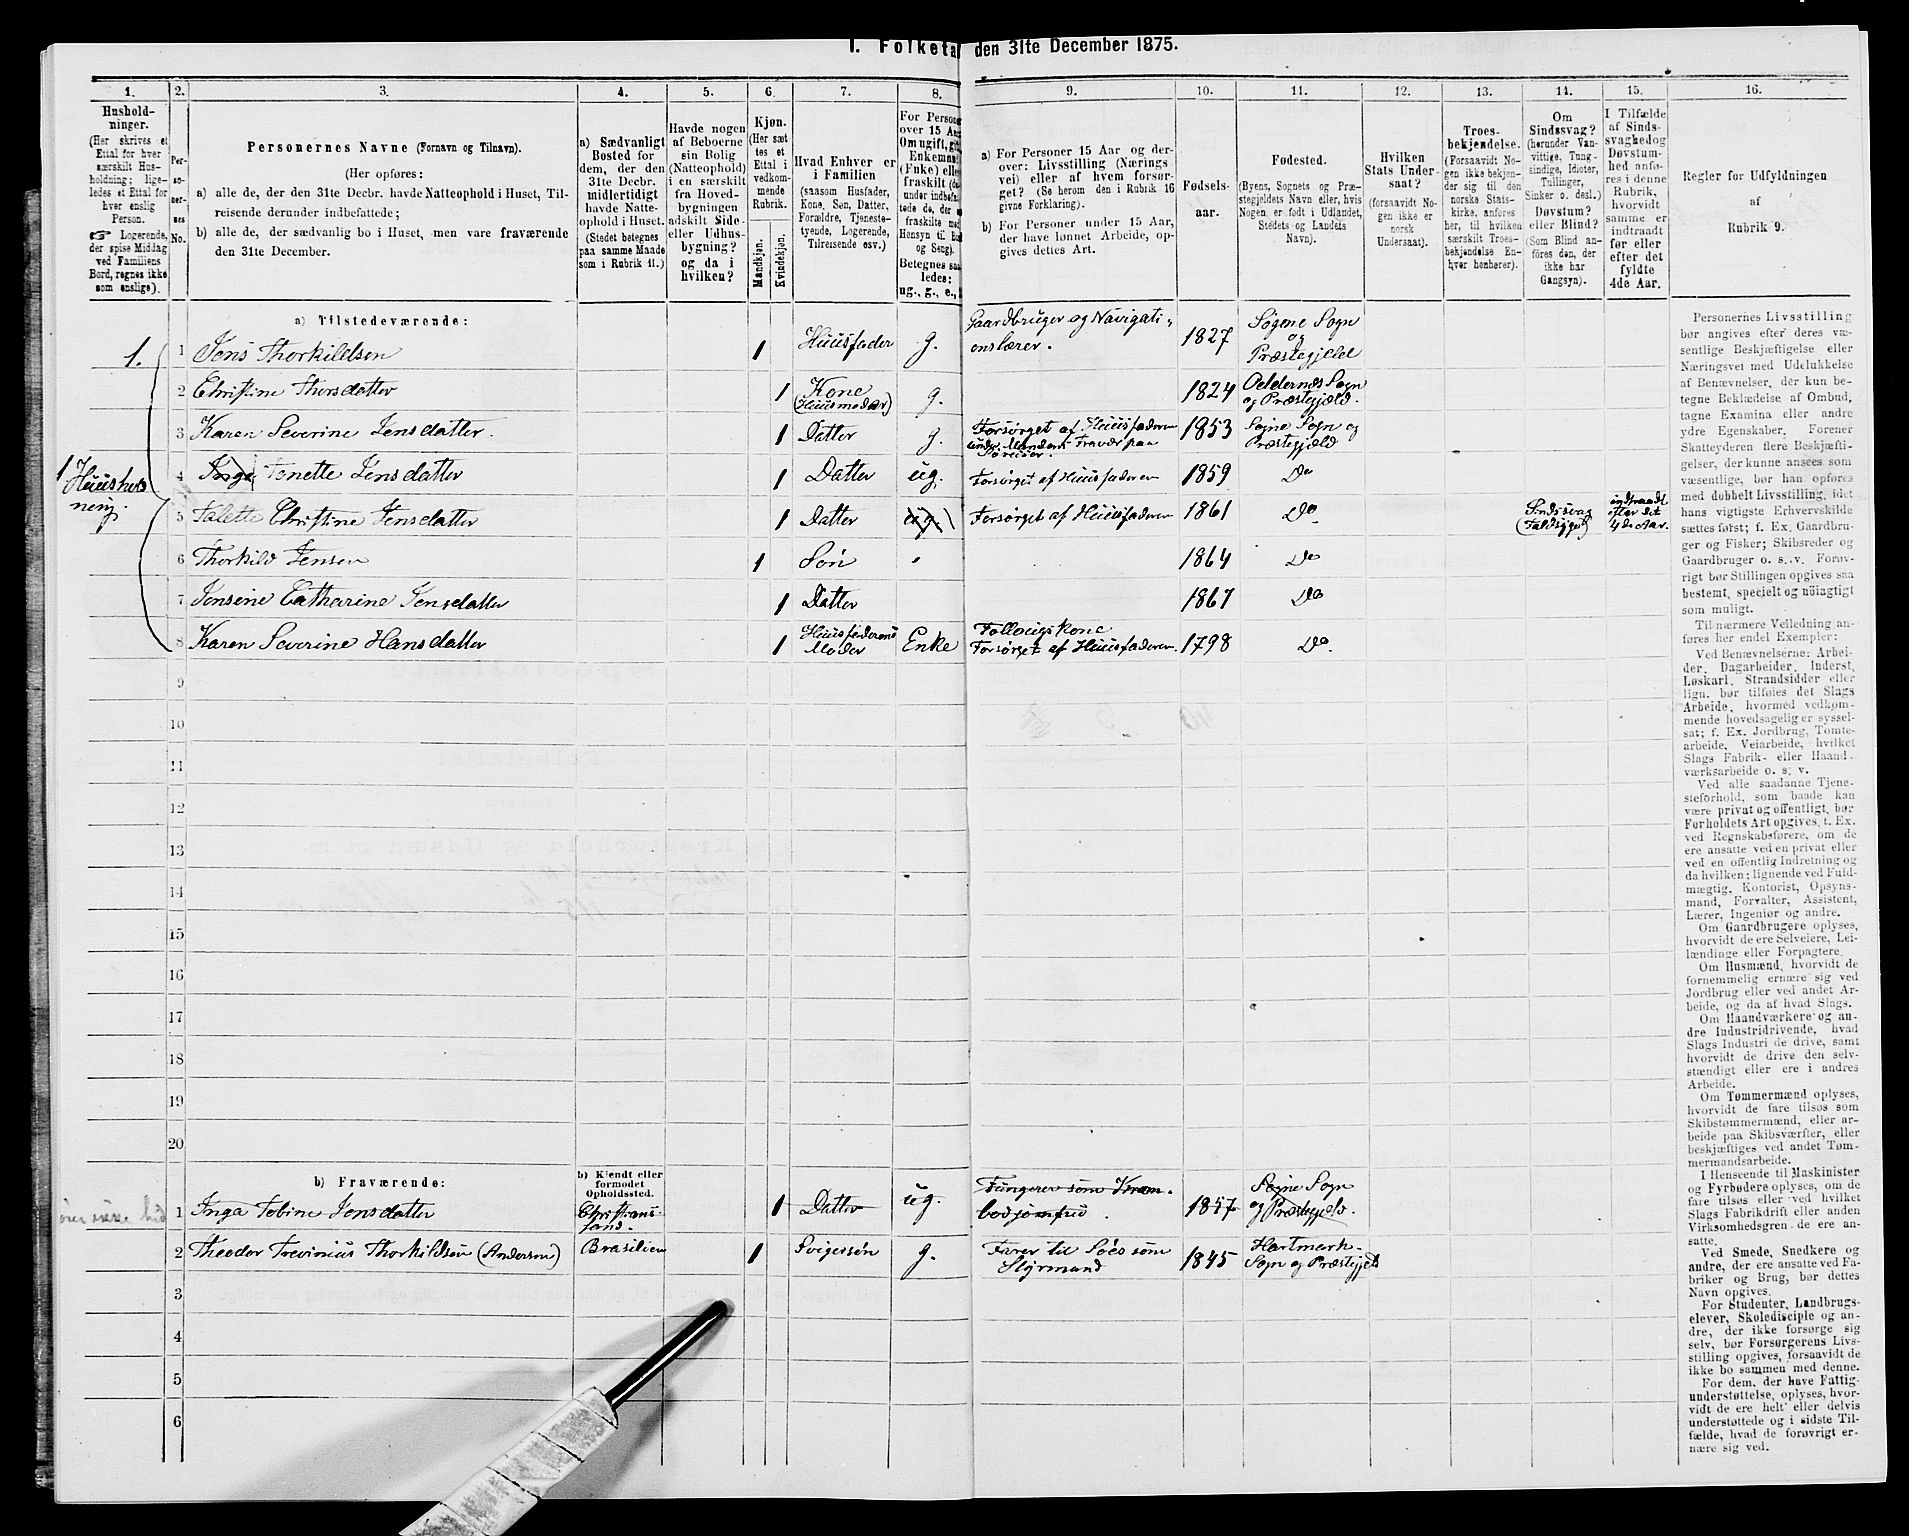 1. Folketal den 31te December 1875.
1. 2. 3. 4. 5. 6. 7. 8. 9. 10. 11. 12. 13. 14. 15. 16.
Hushold-
ninger.
(Her skrives et
Ettal for hver
særskilt Hus-
holdning; lige-
ledes et Ettal for
hver enslig
Person.
☞ Logerende,
der spise Middag
ved Familiens
Bord, regnes ikke
som enslige).
Per-
so-
ner-
nes
No.
Personernes Navne (Fornavn og Tilnavn).
(Her opføres:
a) alle de, der den 31te Decbr. havde Natteophold i Huset, Til-
reisende derunder indbefattede;
b) alle de, der sædvanlig bo i Huset, men vare fraværende
den 31te December.
a) Sædvanligt
Bosted for
dem, der den
31te Decbr.
midlertidigt
havde Natte-
ophold i Huset.
(Stedet betegnes
paa samme Maade
som i Rubrik 11.)
Havde nogen
af Beboerne
sin Bolig
(Natteophold)
i en særskilt
fra Hoved-
bygningen
adskilt Side-
eller Udhus-
bygning?
og da i
hvilken?
Kjøn.
(Her sæt-
tes et
Ettal i
vedkom-
mende
Rubrik.
Mandkjøn.
Kvindekjøn.
Hvad Enhver er
i Familien
(saasom Husfader,
Kone, Søn, Datter,
Forældre, Tjeneste-
tyende, Logerende,
Tilreisende osv.)
For Persone
over 15 Aa
Om ugift, gif
Enkeman
(Enke) elle
fraskilt (de
under indbefa
tede de, der
fraskilte med
Hensyn til Bo
og Seng).
Betegnes saa
ledes:
ug., g., e.,
a) For Personer 15 Aar og der-
over: Livsstilling (Nærings
vei) eller af hvem forsør-
get? (Se herom den i Rubrik 16
givne Forklaring).
b) For Personer under 15 Aar,
der have lønnet Arbeide, op-
gives dettes Art.
Fødsels-
aar.
Fødested.
(Byens, Sognets og Præ-
stegjeldets Navn eller, hvis
Nogen er født i Udlandet,
Stedets og Landets
Navn).
Hvilken
Stats Under-
saat?
(forsaavidt No-
gen ikke er
norsk
Undersaat).
Troes-
bekjendelse.
(Forsaavidt No-
gen ikke bekjen-
der sig til den
norske Stats-
kirke, anføres
her, til hvilken
særskilt Troes-
bekjendelse En-
hver henhører).
Om
Sindssvag?
(herunder Van-
vittige, Tung-
sindige, Idioter,
Tullinger,
Sinker o. desl.)
Døvstum?
eller Blind?
(Som Blind an-
føres den, der
ikke har
Gangsyn).
I Tilfælde
af Sinds-
svaghed og
Døvstum-
hed anfø-
res i denne
Rubrik,
hvorvidt
samme er
indtraadt
før eller
efter det
fyldte
4de Aar.
Regler for Udfyldningen
af
Rubrik 9.
a) Tilstedeværende:
1. 1 Jens Thorkildsen 1 Huusfader g. Gaardbruger og Navigati-
onslærer. 1827 Søgene Sogn
og
Præstegjeld
2 Christine Thorsdatter 1 Kone
(Huusmoder) g. 1824 Oddernes Sogn
og Præstegjæld.
3 Karen Severine Jensdatter. 1 Datter g. Forsørget af Huusfaderen
under Mandens Fravær paa
Søreiser. 1853 Søgne Sogn og
Præstegjæld
1 Huushold-
ning. 4 Inga Tonette Jensdatter 1 Datter ug. Forsørget af Huusfaderen 1859 Do
5 Talette Christine Jensdatter 1 Datter ug. Forsørget af Huusfaderen 1861 Do Sindssvag
(Faldsyge) indtraadt
efter det
4de Aar.
6 Thorkild Jensen 1 Søn 1864 Do
7 Jensine Catharine Jensdatter 1 Datter 1867 Do
8 Karen Severine Hansdatter 1 Huusfaderens
Moder Enke Follougskone
Forsørget af Huusfaderen 1798 Do.
9
10
11
12
13
14
15
16
17
18
19
20
b) Fraværende:
b) Kjendt eller
formodet
Opholdssted.
1 Inga Tobine Jensdatter Christians-
sand. 1 Datter ug. Fungerer som Kram-
bodjomfru. 1857 Søgne Sogn
og Præstegjeld.
2 Theodor Trevinius Thorkildsen (Andersen) Brasilien 1 Svigersøn g. Farer til Søes som
Styrmand 1845 Hartmark
Sogn og Præstegjeld
3
4
5
6
Personernes Livsstilling
bør angives efter deres væ-
sentlige Beskjæftigelse eller
Næringsvei med Udelukkelse
af Benævnelser, der kun be-
tegne Beklædelse af Ombud,
tagne Examina eller andre
ydre Egenskaber. Forener
Skatteyderen flere Beskjæfti-
gelser, der kunne ansees som
væsentlige, bør han opføres
med dobbelt Livsstilling, idet
hans vigtigste Erhvervskilde
sættes først; f. Ex. Gaardbru-
ger og Fisker; Skibsreder og
Gaardbruger o. s. v. Forøv-
rigt bør Stillingen opgives saa
bestemt, specielt og nöiagtigt
som muligt.
Til nærmere Veiledning an-
føres her endel Exempler:
Ved Benævnelserne: Arbei-
der, Dagarbeider, Inderst,
Løskarl, Strandsidder eller
lign. bør tilføies det Slags
Arbeide, hvormed vedkom-
mende hovedsagelig er syssel-
sat; f. Ex. Jordbrug, Tomte-
arbeide, Veiarbeide, hvilket
Slags Fabrik- eller Haand-
værksarbeide o. s. v.
Ved alle saadanne Tjene-
steforhold, som baade kan
være privat og offentligt, bør
Forholdets Art opgives, t. Ex.
ved Regnskabsførere, om de
ere ansatte ved en privat eller
ved en offentlig Indretning og
da hvilken; lignende ved Fuld-
mægtig, Kontorist, Opsyns-
mand, Forvalter, Assistent,
Lærer, Ingeniør og andre.
Om Gaardbrugere oplyses,
hvorvidt de ere Selveiere, Lei-
lændinge eller Forpagtere.
Om Husmænd, hvorvidt de
fornemmelig ernære sig ved
Jordbrug eller ved andet Ar-
beide, og da af hvad Slags.
Om Haandværkere og an-
dre Industridrivende, hvad
Slags Industri de drive, samt
hvorvidt de drive den selv-
stændigt eller ere i andres
Arbeide.
Om Tømmermænd oplyses,
hvorvidt de fare tilsøs som
Skibstømmermænd, eller ar-
beide paa Skibsværfter, eller
beskjæftiges ved andet Tøm-
mermandsarbeide.
I Henseende til Maskinister
og Fyrbødere oplyses, om de
fare tilsøs eller ved hvilket
Slags Fabrikdrift eller anden
Virksomhedsgren de ere an-
satte.
Ved Smede, Snedkere og
andre, der ere ansatte ved Fa-
briker og Brug, bør dettes
Navn opgives.
For Studenter, Landbrugs-
elever, Skoledisciple og an-
dre, der ikke forsørge sig
selv, bør Forsørgerens Livs-
stilling opgives, forsaavidt de
ikke bo sammen med denne.
For dem, der have Fattig-
understøttelse, oplyses, hvor-
vidt de ere helt eller delvis
understøttede og i sidste Til-
fælde, hvad de forøvrigt er-
nære sig ved.